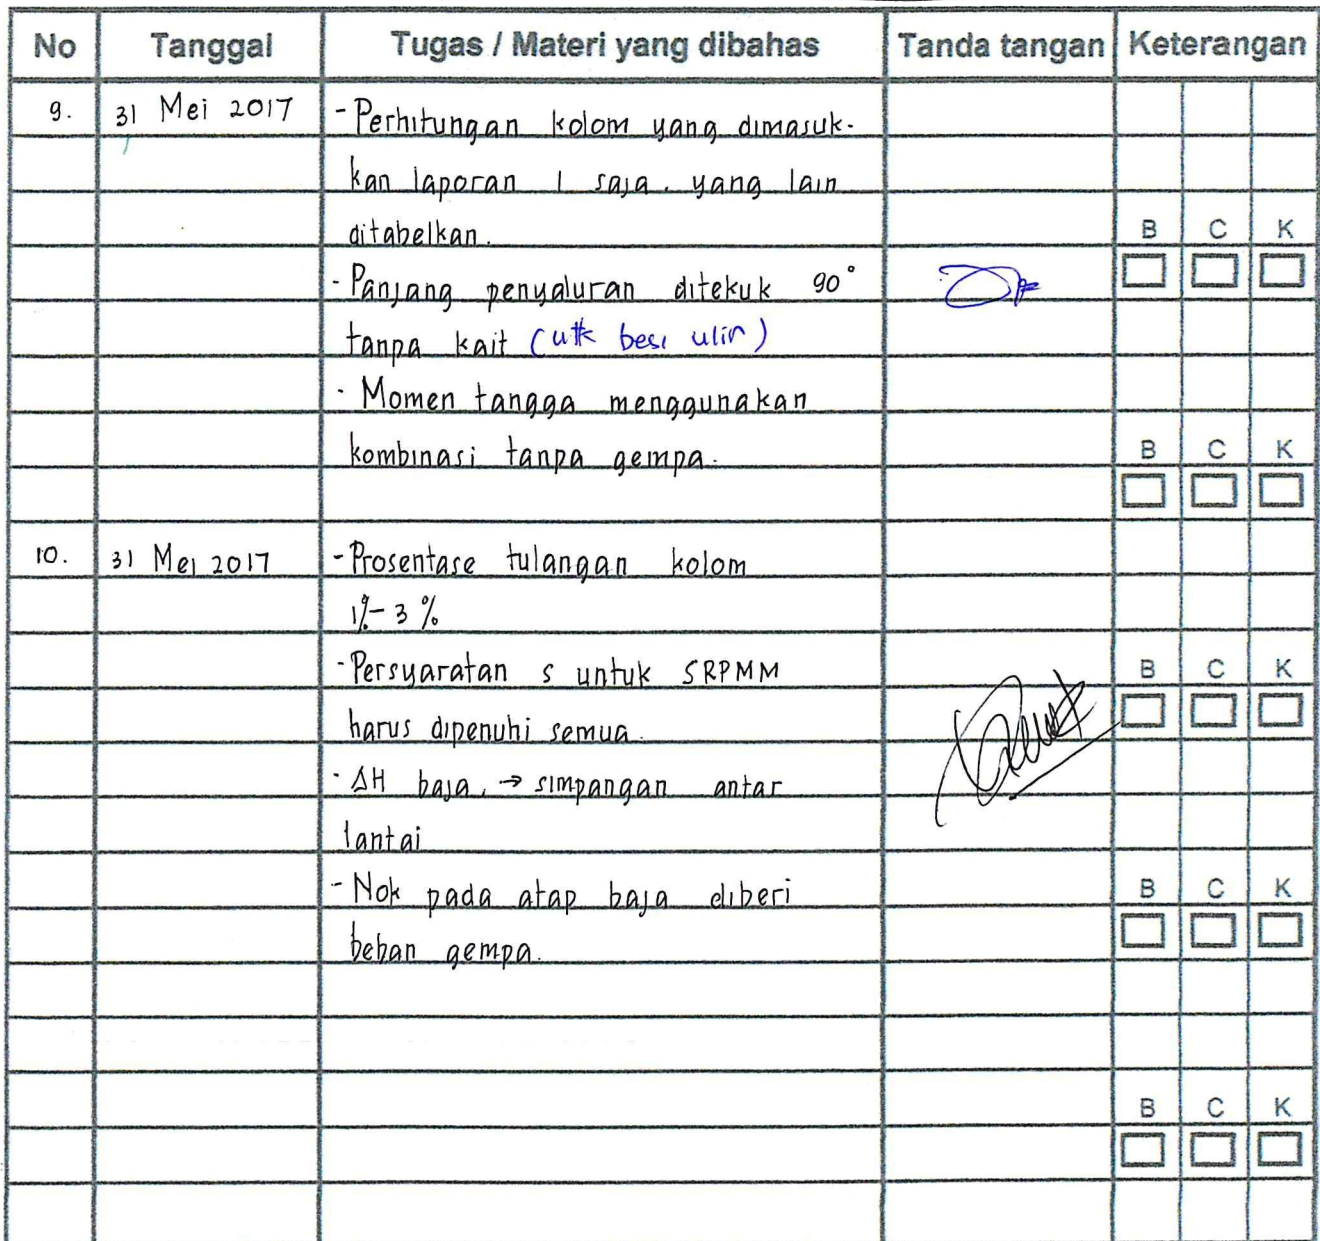 No Tanggal Tugas / Materi yang dibahas Tanda tangan Keterangan
9. 31 Mei 2017 - Perhitungan kolom yang dimasuk-
kan laporan 1 saja. yang lain
ditabelkan. B C K
- Panjang penyaluran ditekuk 90°
tanpa kait (utk besi ulir)
- Momen tangga menggunakan
kombinasi tanpa gempa. B C K
10. 31 Mei 2017 - Prosentase tulangan kolom
1%-3%
- Persyaratan s untuk SRPMM B C K
harus dipenuhi semua.
- ΔH baja. → simpangan antar
lantai
- Nok pada atap baja diberi B C K
beban gempa.
B C K